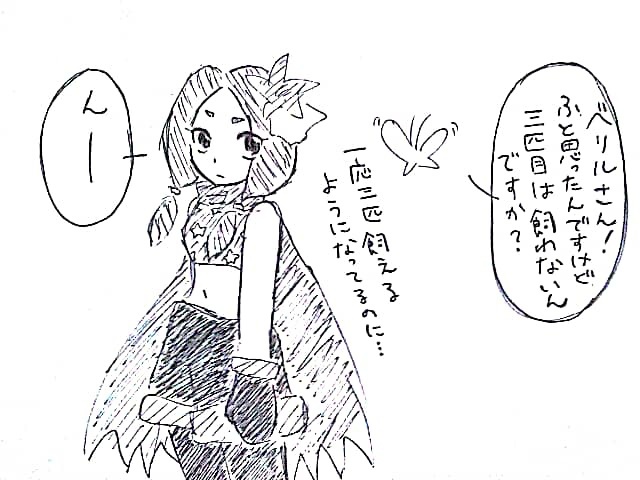 ベリルさん！
ふと思ったんですけど
三匹目は飼わないん
ですか？
一応三匹飼える
ようになってるのに…
んー